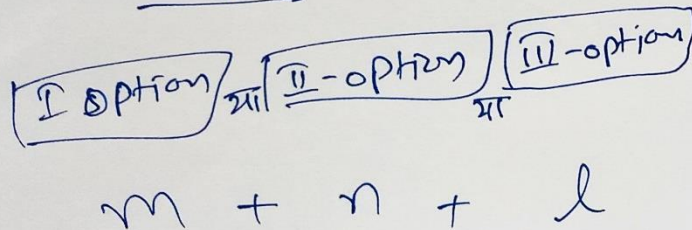 I option या II-option या III-option
m + n + l